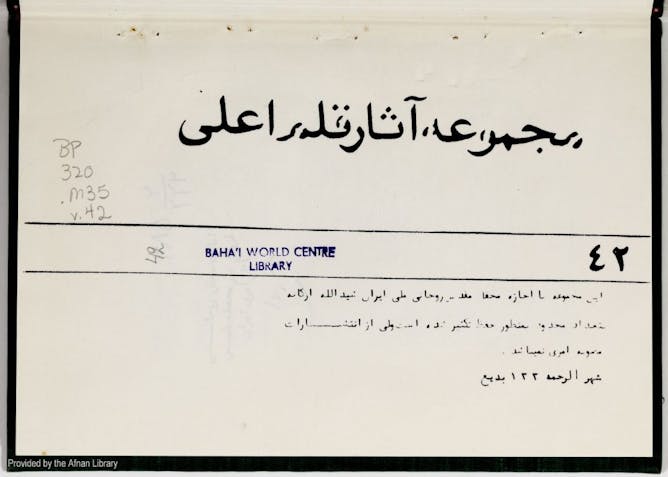 مجموعه آثار قلم اعلی
BP
320
.M35
v.42
42
BAHA'I WORLD CENTRE
LIBRARY
٤٢
این مجموعه با اجازه محفل مقدس روحانی ملی ایران شیدالله ارکانه
بتعداد محدود بمنظور حفظ تکثیر شده است ولی از انتشارات
مصوبه امری نمیباشد .
شهر الرحمة ١٢٢ بدیع
Provided by the Afnan Library